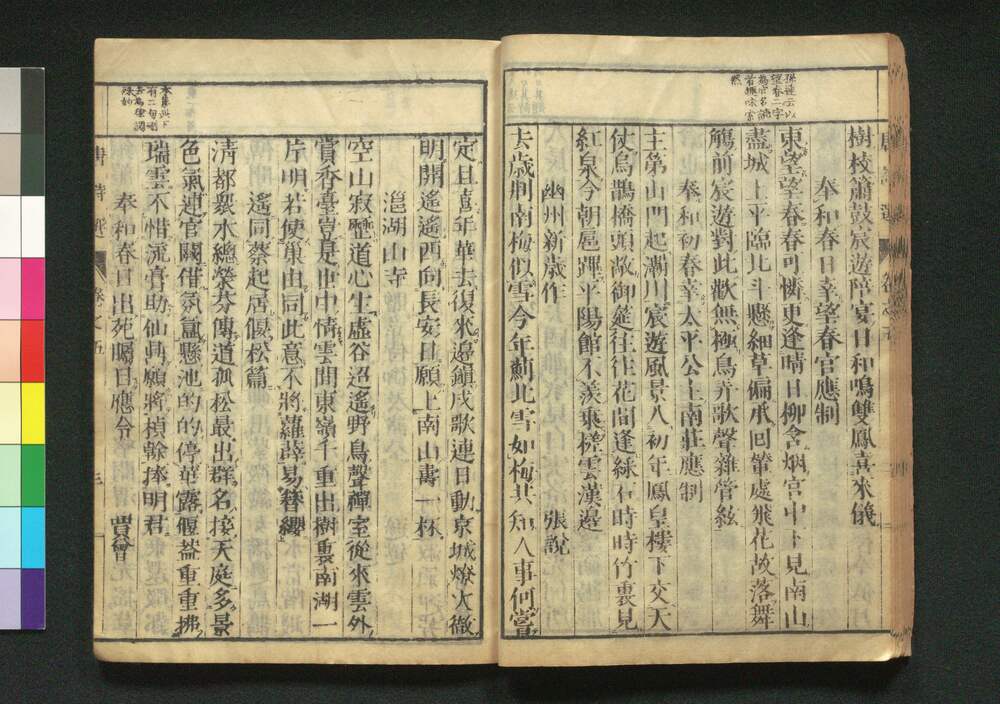 樹枝簫鼓宸遊陪宴日和鳴雙鳳喜來儀
奉和春日幸望春宮應制
東望望春春可憐更逢晴日柳含烟宮中下見南山
盡城上平臨北斗懸細草偏承回輦處飛花故落舞
觴前宸遊對此歡無極鳥弄歌聲雜管絃
奉和初春幸太平公主南莊應制
主第山門起灞川宸遊風景入初年鳳皇樓下交天
仗烏鵲橋頭敞御筵往往花間逢綵石時時竹裏見
紅泉今朝扈蹕平陽館不羨乘槎雲漢邊
幽州新歲作 張說
去歲荆南梅似雪今年薊北雪如梅共知人事何嘗
定且喜年華去復來邊鎮戍歌連日動京城燎火徹
明開遙遙西向長安日願上南山壽一杯
㴩湖山寺
空山寂歷道心生虛谷迢遙野鳥聲禪室從來雲外
賞香臺豈是世中情雲間東嶺千重出樹裏南湖一
片明若使巢由同此意不將蘿薜易簪纓
遙同蔡起居偃松篇
清都衆木總榮芬傳道孤松最出群名接天庭多景
色氣連宮闕借氛氳懸池的的停華露偃蓋重重拂
瑞雲不惜流膏助仙鼎願將楨幹捧明君
奉和春日出苑矚目應令 賈曾
唐詩選 卷之五 三